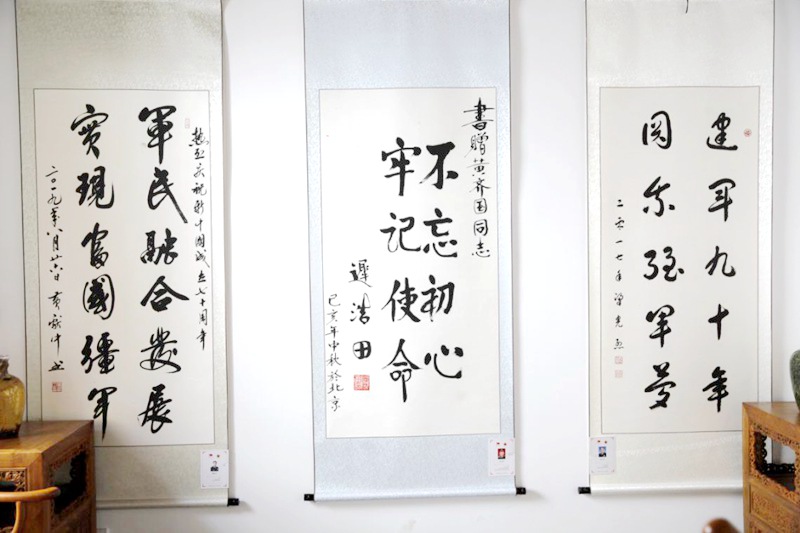 建军九十年
圆尔强军梦
二零一七年
書贈黄齐国同志
不忘初心
牢记使命
遲浩田
己亥年中秋於北京
热烈庆祝新中國成立七十周年
軍民融合發展
實現富國彊军
二〇一九年八月廿六日